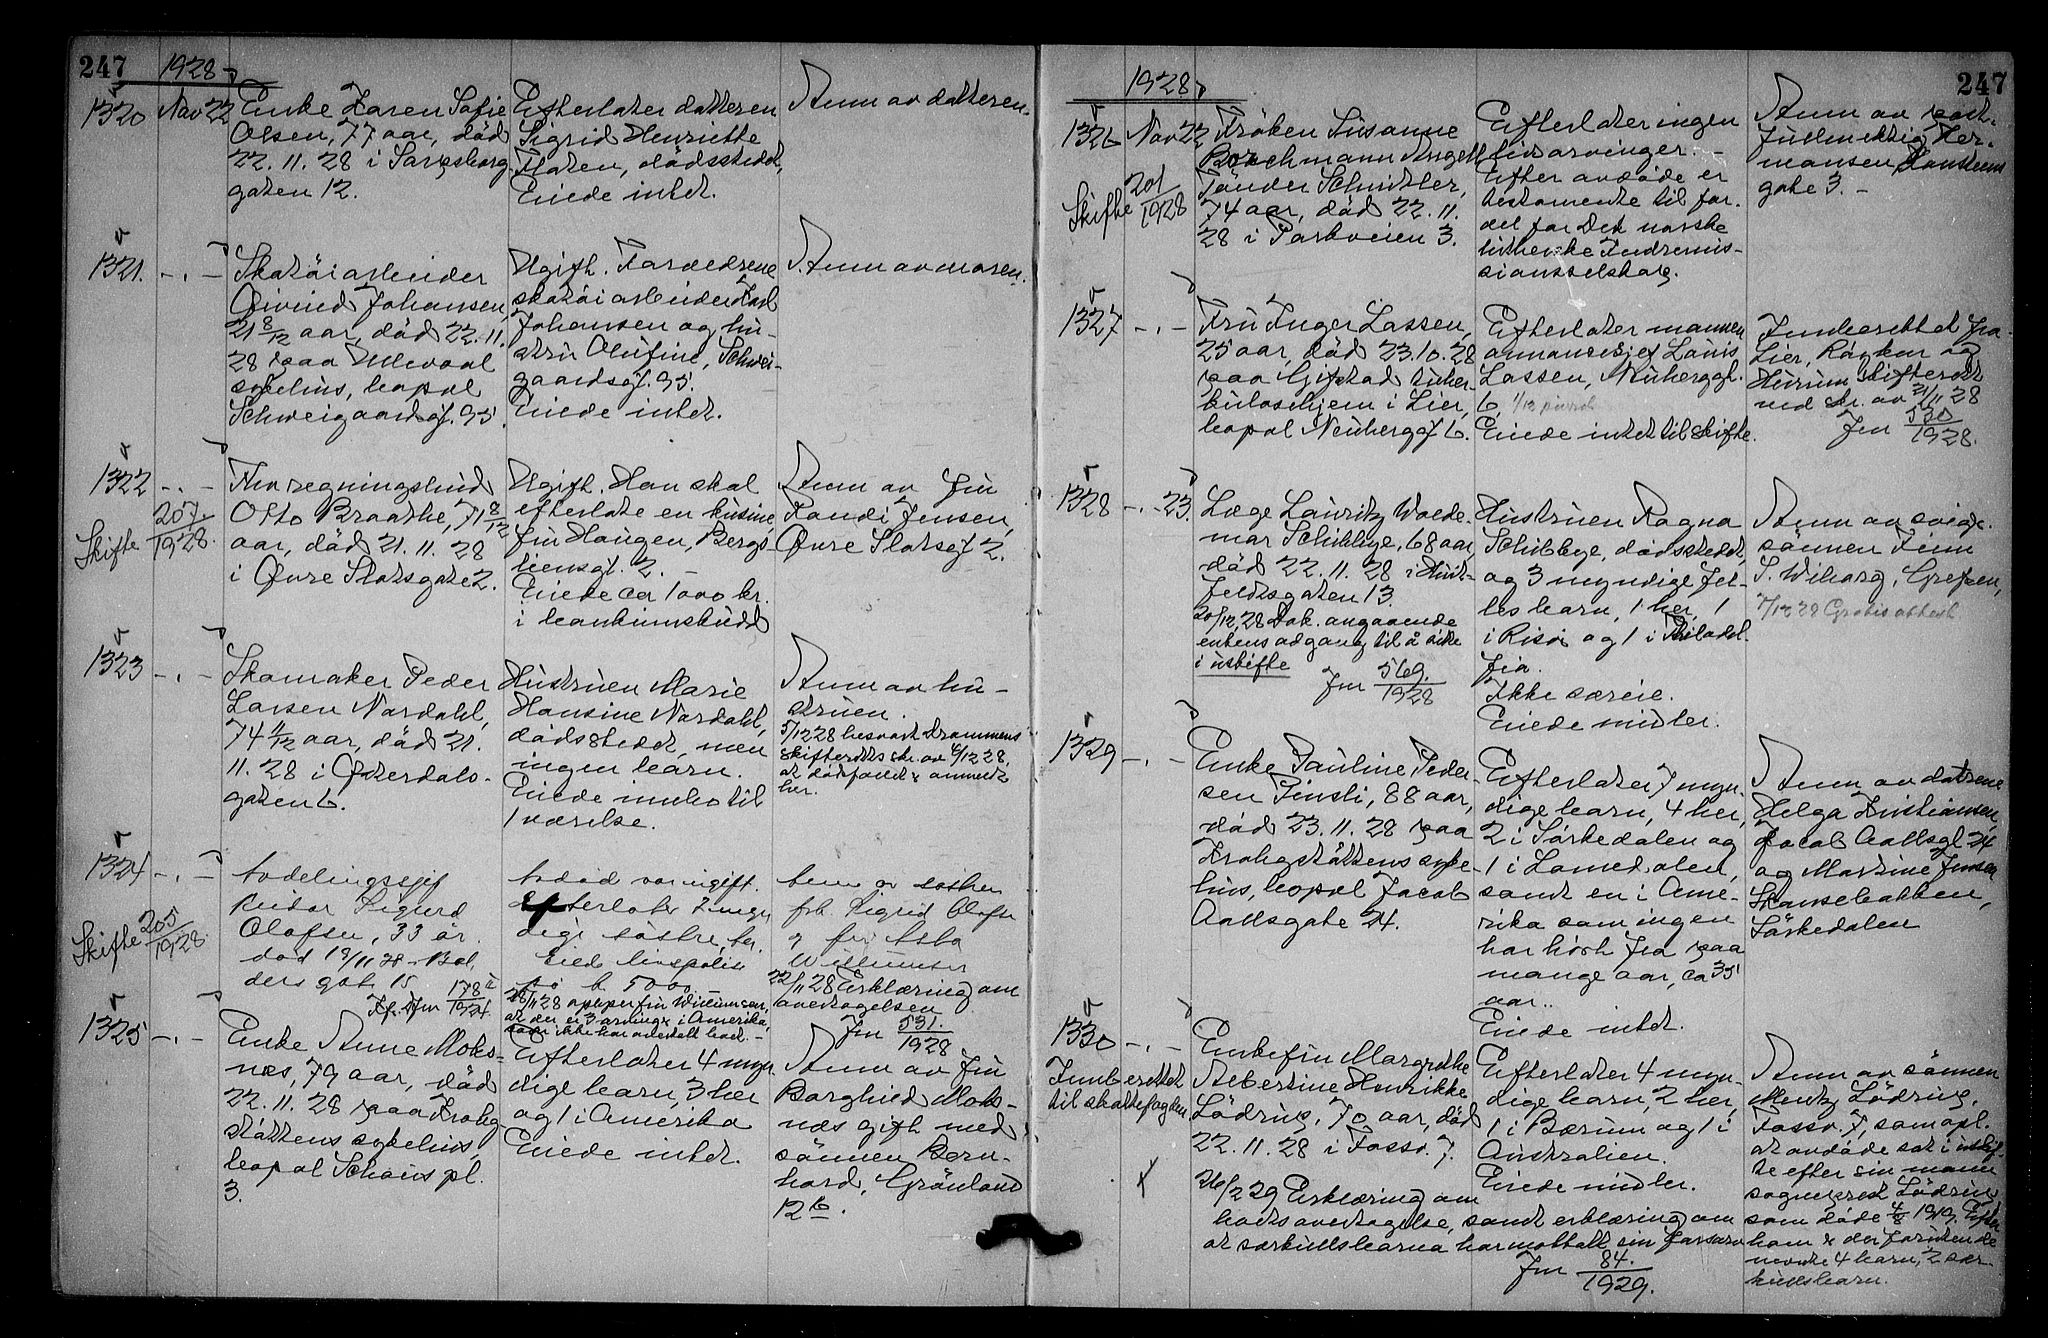 247
1928
1320
Nov 22
Enke Karen Sofie
Olsen, 77 aar, död
22. 11. 28 i Sarpsborg
gaten 12.
Efterlater datteren
Sigrid Henriette
Floten, dödsstedet,
Eiede intet.
Anm av datteren.
1321. -.-
Skotöiarbeider
Öivind Johansen,
21 8/12 aar, död 22. 11.
28 paa Ullevaal
sykehus, bopæl
Schweigaardsgt. 95.
Ugift. Forældrene
skotöiarbeider Karl
Johansen og hu-
stru Olufine, Schwei-
gaardsgt. 95.
Eiede intet.
Anm av moren.
1322 -.-
Skifte 207/1928.
Fhv regningsbud
Otto Braathe, 71 8/12
aar, död 21. 11. 28
i Övre Slotsgate 2.
Ugift. Han skal
efterlate en kusine
fru Haugen, Bergs-
liensgt. 2.
Eiede ca 1000 kr.
i bankinnskudd
Anm av fru
Randi Jensen,
Övre Slotsgt 2.
1323 -.-
Skomaker Peder
Larsen Nordahl,
74 11/12 aar, död 21.
11. 28 i Österdals-
gaten 6.
Hustruen Marie
Hansine Nordahl,
dödsstedet, men
ingen barn.
Eiede innbo til
1 værelse.
Anm av hu-
struen.
5/12 28 besvart Drammens
skifteretts skr. av 4/12 28.
at dödsfallet er anmeldt
her.
1324 -.-
Skifte 205/1928.
Avdelingssjef
Reidar Sigurd
Olafsen, 33 år.
död 18/11 28 - Bal-
ders gate 15
Kfr. Jnr 178/1924.
Avdöd var ugift.
Efterlater 2 myn-
dige söstre, her.
Eiede livspolise
på kr 5000.
26/11 28 opgir fru Willumsen,
at der er 3 arvinger i Amerika,
som ikke har avertert boet. -
Anm av söstren
frk. Sigrid Olafsen
og fru Asta
Willumsen
22/11 28 Erklæring om
overtagelsen
Jnr 531./1928
1325 -.-
Enke Anne Moks-
nes, 79 aar, död
22. 11. 28 paa Krohg
støttens sykehus,
bopæl Schous pl.
3.
Efterlater 4 myn
dige barn, 3 her
og 1 i Amerika
Eiede intet.
Anm av fru
Borghild Moks-
nes gift med
sönnen Bern-
hard, Grönland
12 b.
247
1928
1326 Nov 22
Skifte 201/1928
Fröken Susanne
Borchmann Angell
Tönder Schnitler,
74 aar, död 22. 11.
28 i Parkveien 3.
Efterlater ingen
livsarvinger. -
Efter avdöde er
testamente til for-
del for Det norske
lutherske Indremis-
sionsselskap.
Anm av post-
fullmektig Her-
mansen, Hansteens
gate 3. -
1327 -.-
Fru Inger Lassen,
25 aar, död 23. 10. 28
paa Gifstad tuber-
kulosehjem i Lier,
bopæl Neuberggt 6.
Efterlater mannen
annonsesjef Louis
Lassen, Neuberggt.
6.
Eiede intet til skifte.
Innberettet fra
Lier, Röyken og
Hurum skifterett
ved skr. av 21/11 28
Jnr 530/1928.
1328 -.- 23.
Læge Lauritz Wolde-
mar Schibbye, 68 aar,
död 22. 11. 28 i Huit-
feldtsgaten 13.
20/12 28 Dok. angaaende
enkens adgang til å sitte
i uskifte
Jnr 569./1928
Hustruen Ragna
Schibbye, dödsstedet,
og 3 myndige fel-
les barn, 1 her, 1
i Risör og 1 i Philadel-
fia.
Ikke særeie.
Eiede midler.
Anm av sviger-
sönnen Finn
S. Wiborg, Grefsen,
7/12 28 Gratis attest
1329 -.-
Enke Pauline Peder-
sen Finsli, 88 aar,
död 23. 11. 28 paa
Krohgstöttens syke-
hus, bopæl Jacob
Aallsgate 24.
Efterlater 7 myn-
dige barn, 4 her,
2 i Sörkedalen og
1 i Lommedalen,
samt en i Ame-
rika som ingen
har hört fra paa
mange aar, ca 35
aar..
Eiede intet.
Anm av döttrene
Helga Kristiansen,
Jacob Aallsgt 24
og Martine Jensen
Skansebakken,
Sörkedalen
1330 -.-
Innberettet
til skattefogden
Enkefru Margrethe
Albertine Henrikke
Lödrup, 70 aar, död
22. 11. 28 i Fossv. 7.
26/2 29 Erklæring om
boets overtagelse, samt erklæring om
at særkullsbarna har mottatt sin farsarv
Jnr 84./1929.
Efterlater 4 myn-
dige barn, 2 her,
1 i Bærum og 1 i
Australien.
Eiede midler.
Anm av sönnen
Mentz Lödrup,
Fossv. 7, som opl.
at avdöde sat i uskif-
te efter sin mann
sogneprest Lödrup,
som döde 4/8 1919. Efter
ham er der foruten de
nevnte 4 barn, 2 sær-
kullsbarn.